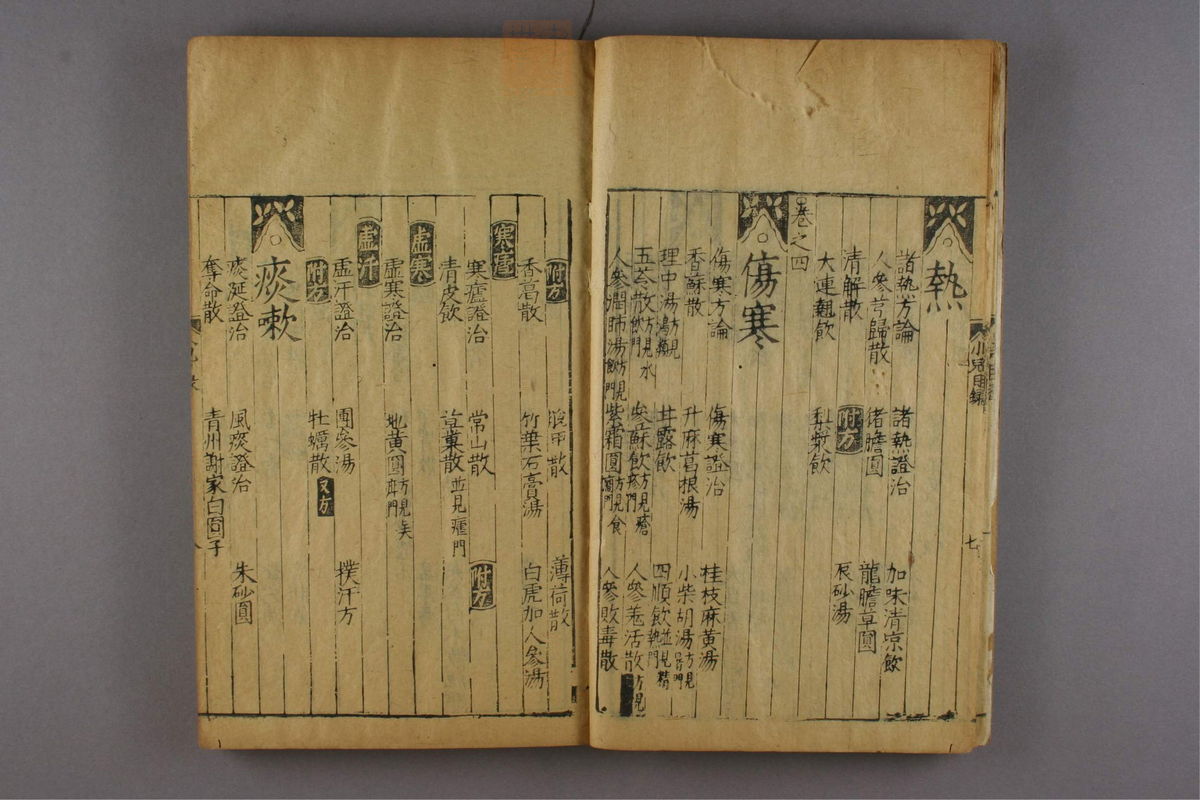 熱
諸熱方論 諸熱證治 加味清凉飲
人參芎歸散 猪膽圓 龍膽草圓
清解散 附方 辰砂湯
大連翹飲 梨漿飲
卷之四
傷寒
傷寒方論 傷寒證治 桂枝麻黄湯
香蘇散 升麻葛根湯 小柴胡湯方見
理中湯方見 甘露飲 四順飲並見精熱門
五苓散方見水飲門 參蘇飲方見瘡疹門 人參羗活散方見
人參潤肺湯方見飲門 紫霜圓方見食 人參敗毒散
小兒目録
七
附方 脫甲散 薄荷散
香葛散 竹葉石膏湯 白虎加人參湯
寒瘧
寒瘧證治 常山散 附方
青皮飲 草菓散並見瘧門
虚寒
虚寒證治 地黄圓方見
虚汗
虚汗證治 團參湯 撲汗方
附方 牡蠣散 又方
痰嗽
痰涎證治 風痰證治 朱砂圓
奪命散 青州謝家白圓子